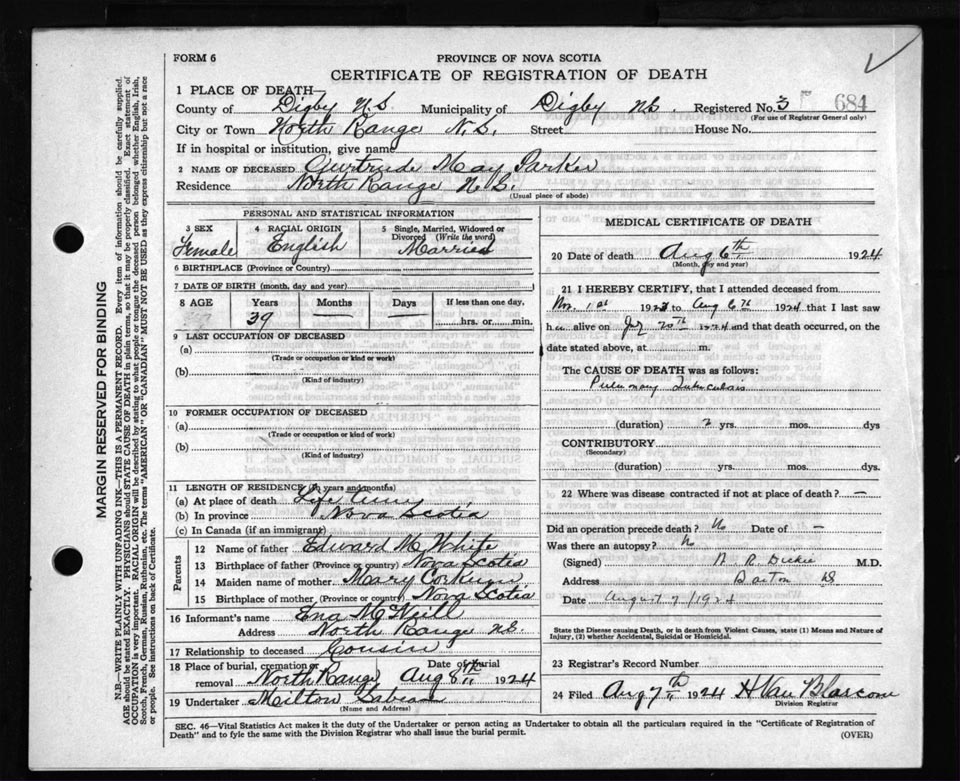 FORM 6
PROVINCE OF NOVA SCOTIA
CERTIFICATE OF REGISTRATION OF DEATH
1 PLACE OF DEATH—
County of Digby N.S. Municipality of Digby N.S. Registered No. 3 684
(For use of Registrar General only)
City or Town North Range N.S. Street House No.
If in hospital or institution, give name
2 NAME OF DECEASED Gertrude May Parker
Residence North Range N.S.
(Usual place of abode)
PERSONAL AND STATISTICAL INFORMATION
3 SEX Female
4 RACIAL ORIGIN English
5 Single, Married, Widowed or Divorced (Write the word) Married
6 BIRTHPLACE (Province or Country)
7 DATE OF BIRTH (month, day and year)
8 AGE Years Months Days If less than one day,
39 hrs. or min.
9 LAST OCCUPATION OF DECEASED
(a)
(Trade or occupation or kind or work)
(b)
(Kind of industry)
10 FORMER OCCUPATION OF DECEASED
(a)
(Trade or occupation or kind of work)
(b)
(Kind of industry)
11 LENGTH OF RESIDENCE (in years and months)
(a) At place of death Life
(b) In province Nova Scotia
(c) In Canada (if an immigrant)
Parents
12 Name of father Edward M. White
13 Birthplace of father (Province or country) Nova Scotia
14 Maiden name of mother Mary
15 Birthplace of mother (Province or country) Nova Scotia
16 Informant's name Ena McNeill
Address North Range N.S.
17 Relationship to deceased Cousin
18 Place of burial, cremation or removal North Range Date of burial Aug 8th 1924
19 Undertaker Milton
(Name and Address)
MEDICAL CERTIFICATE OF DEATH
20 Date of death Aug 6th 1924
(Month, day and year)
21 I HEREBY CERTIFY, that I attended deceased from
1st 1923 to Aug 6th 1924 that I last saw
her alive on 1924 and that death occurred, on the
date stated above, at m.
The CAUSE OF DEATH was as follows:
Pulmonary Tuberculosis
(duration) 2 yrs. mos. dys
CONTRIBUTORY
(Secondary)
(duration) yrs. mos. dys.
22 Where was disease contracted if not at place of death? —
Did an operation precede death? No Date of —
Was there an autopsy? No
(Signed) R. Dickie M.D.
Address Barton NS
Date August 7/1924
State the Disease causing Death, or in death from Violent Causes, state (1) Means and Nature of
Injury, (2) whether Accidental, Suicidal or Homicidal.
23 Registrar's Record Number
24 Filed Aug 7th 1924 H Van Blarcom
Division Registrar
SEC. 46—Vital Statistics Act makes it the duty of the Undertaker or person acting as Undertaker to obtain all the particulars required in the "Certificate of Registration of
Death" and to fyle the same with the Division Registrar who shall issue the burial permit.
(OVER)
MARGIN RESERVED FOR BINDING
N.B.—WRITE PLAINLY WITH UNFADING INK—THIS IS A PERMANENT RECORD. Every item of information should be carefully supplied.
AGE should be stated EXACTLY. PHYSICIANS should STATE CAUSE OF DEATH in plain terms, so that it may be properly classified. Exact statement of
OCCUPATION is very important. RACIAL ORIGIN will be described by stating to what people or tongue the deceased person belonged whether English, Irish,
Scotch, French, German, Russian, Ruthenian, etc. The terms "AMERICAN" or "CANADIAN" MUST NOT BE USED as they express citizenship but not a race
or people. See instructions on back of Certificate.